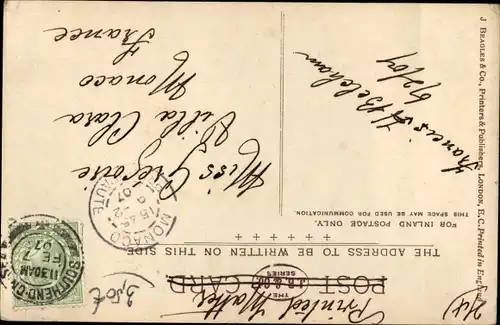 Printed Matter
POST CARD
THE
J.B. & Co.
SERIES
THE ADDRESS TO BE WRITTEN ON THIS SIDE
FOR INLAND POSTAGE ONLY.
THIS SPACE MAY BE USED FOR COMMUNICATION.
Francis H Belcham
6/2/07
Miss Gregarie
Villa Clara
Monaco
France
MONACO
15 45
9 -2
07
SOUTHEND-ON-S
11.30AM
FE 7
07
3,50€
J. BEAGLES & Co., Printers & Publishers, LONDON, E.C. Printed in England